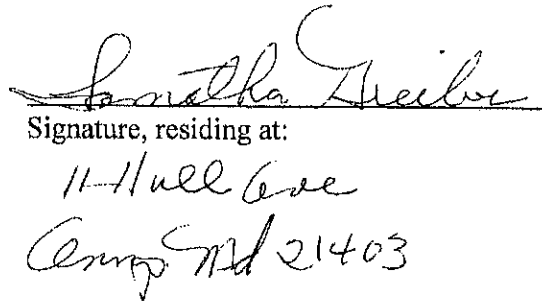 Samantha Greiber
Signature, residing at:
11 Hull Ave
Md 21403